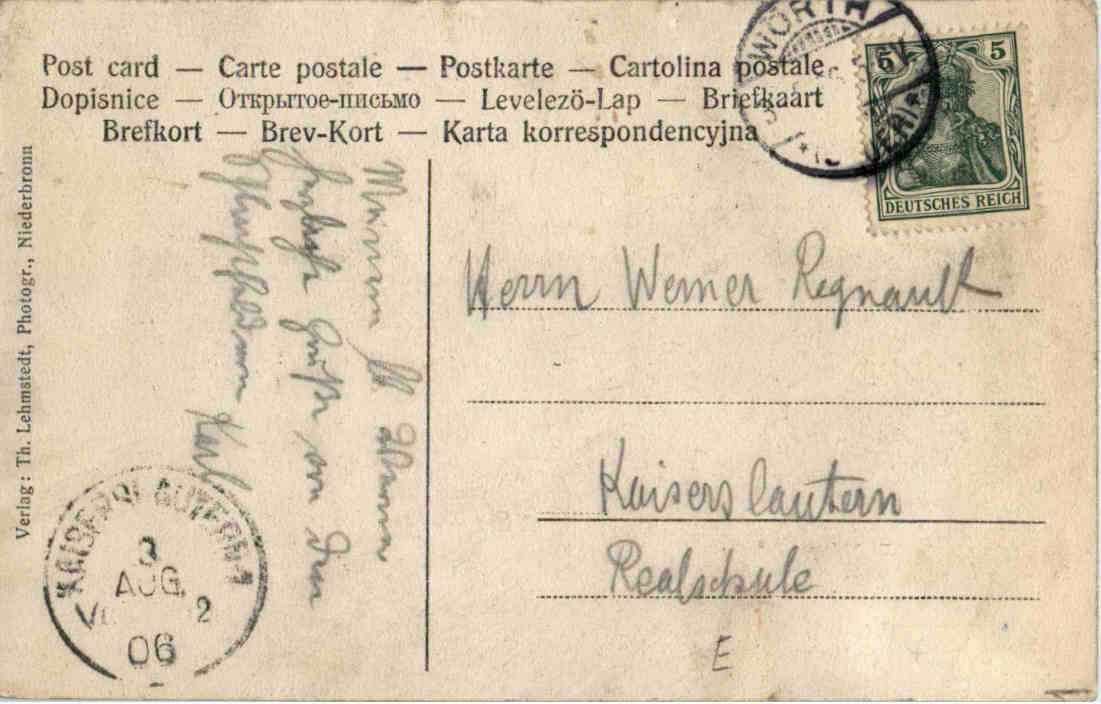 Post card — Carte postale — Postkarte — Cartolina postale
Dopisnice — Открытое-письмо — Levelező-Lap — Briefkaart
Brefkort — Brev-Kort — Karta korrespondencyjna
WÖRTH
5 5
DEUTSCHES REICH
Verlag: Th. Lehmstedt, Photogr., Niederbronn
Grüße von dem
Karl
Herrn Werner Regnault
Kaiserslautern
Realschule
E
KAISERSLAUTERN 1
3
AUG.
V 2
06